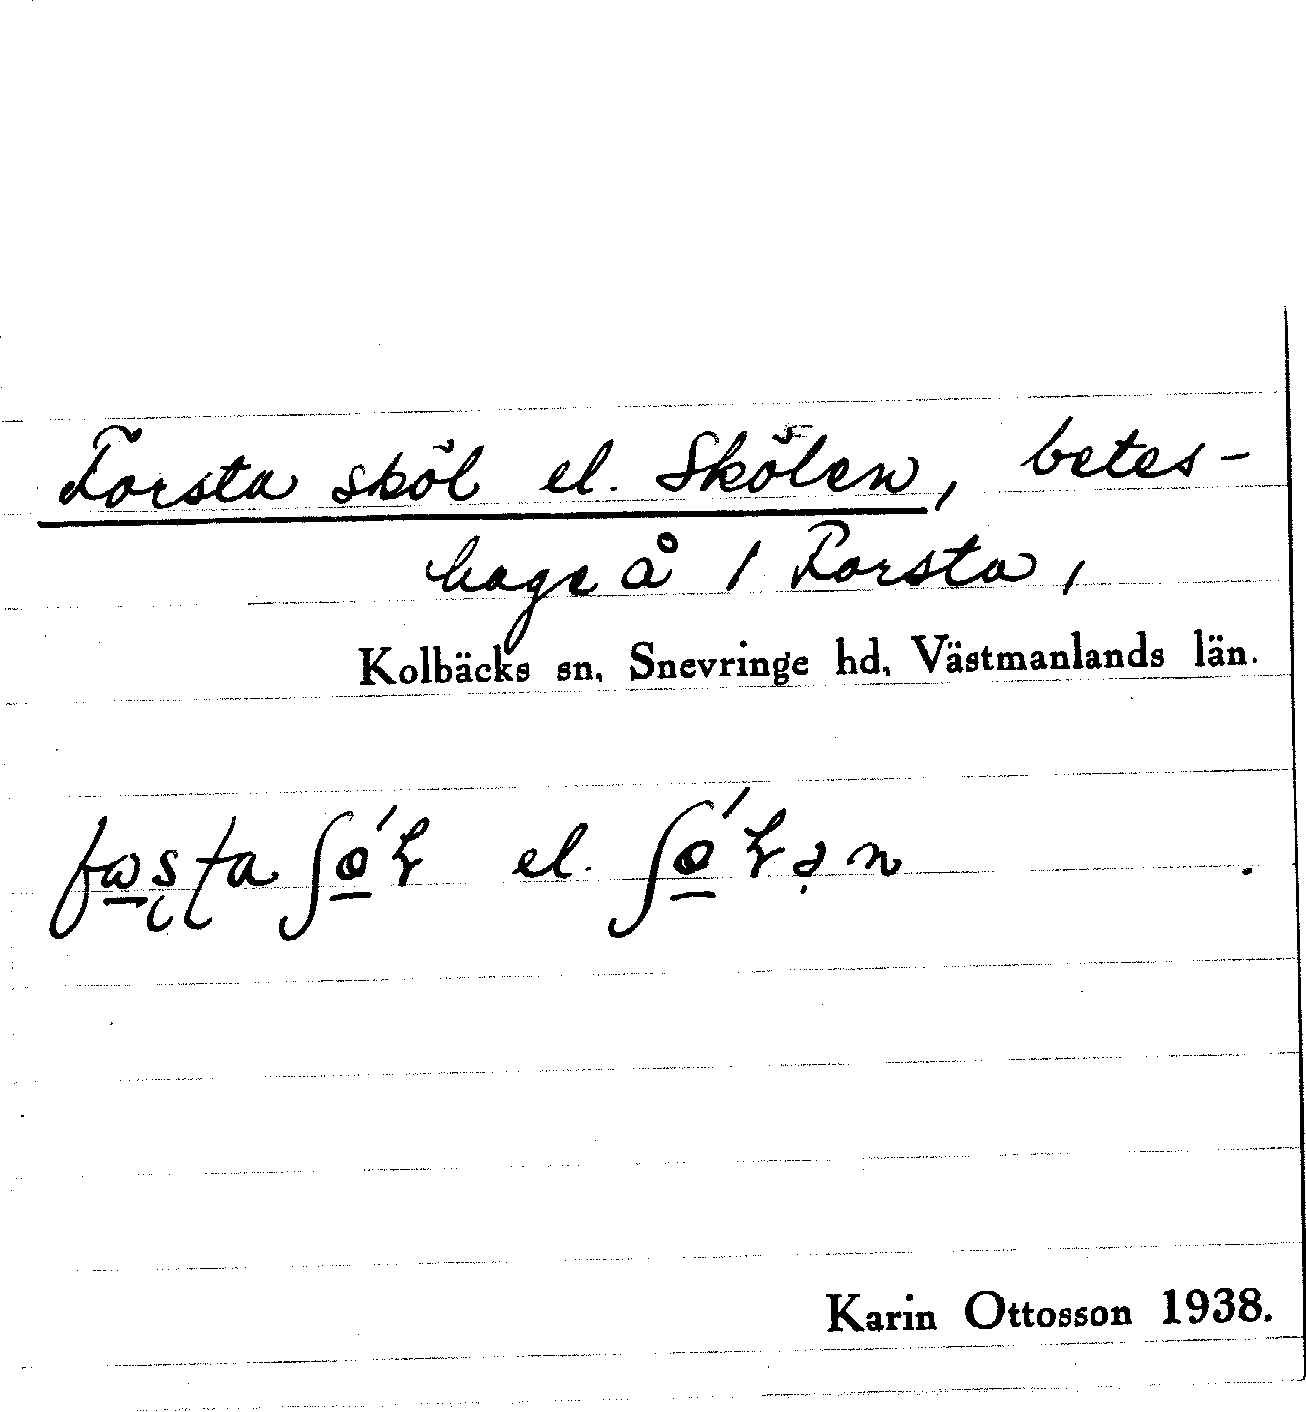 Forsta sköl el. Skölen, betes-
hage å 1 Forsta,
Kolbäcks sn, Snevringe hd, Västmanlands län.
el.
Karin Ottosson 1938.